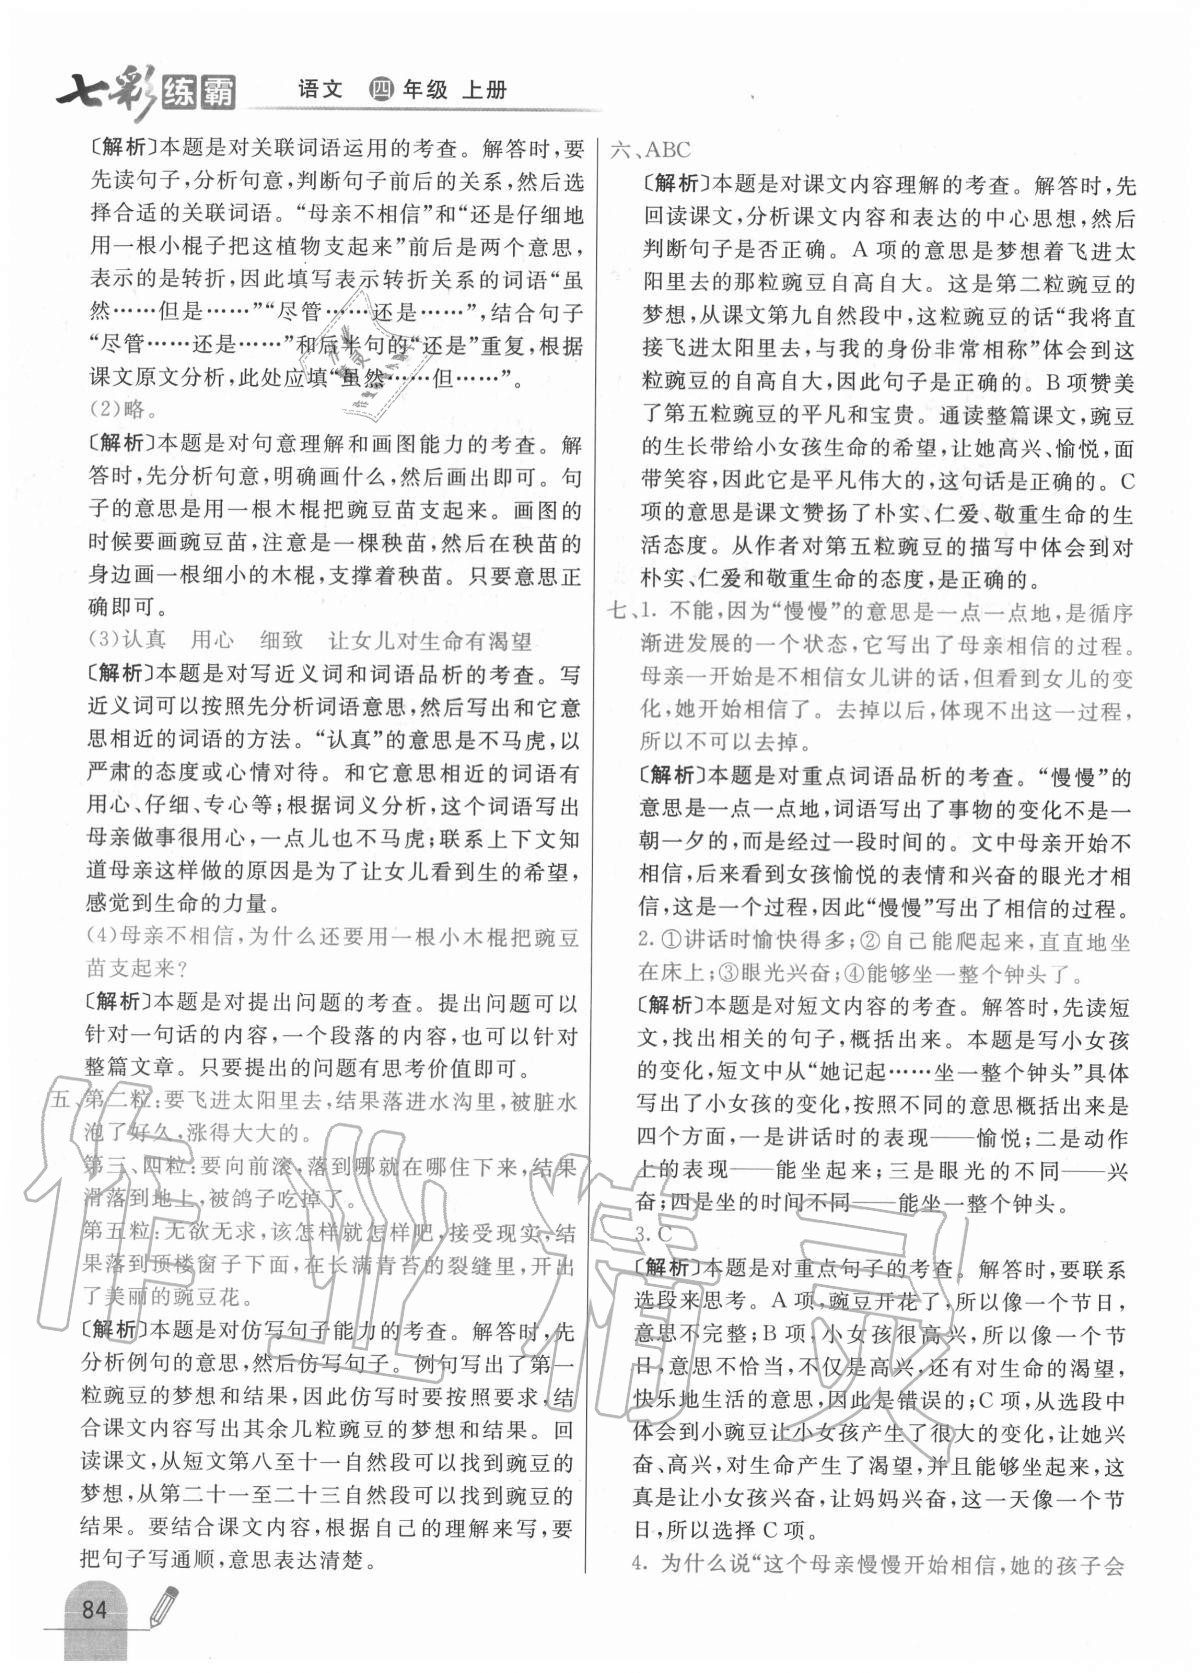 七彩练霸 语文 四年级 上册
〔解析〕本题是对关联词语运用的考查。解答时,要
先读句子,分析句意,判断句子前后的关系,然后选
择合适的关联词语。“母亲不相信”和“还是仔细地
用一根小棍子把这植物支起来”前后是两个意思,
表示的是转折,因此填写表示转折关系的词语“虽
然……但是……”“尽管……还是……”,结合句子
“尽管……还是……”和后半句的“还是”重复,根据
课文原文分析,此处应填“虽然……但……”。
(2)略。
〔解析〕本题是对句意理解和画图能力的考查。解
答时,先分析句意,明确画什么,然后画出即可。句
子的意思是用一根木棍把豌豆苗支起来。画图的
时候要画豌豆苗,注意是一棵秧苗,然后在秧苗的
身边画一根细小的木棍,支撑着秧苗。只要意思正
确即可。
(3)认真 用心 细致 让女儿对生命有渴望
〔解析〕本题是对写近义词和词语品析的考查。写
近义词可以按照先分析词语意思,然后写出和它意
思相近的词语的方法。“认真”的意思是不马虎,以
严肃的态度或心情对待。和它意思相近的词语有
用心、仔细、专心等;根据词义分析,这个词语写出
母亲做事很用心,一点儿也不马虎;联系上下文知
道母亲这样做的原因是为了让女儿看到生的希望,
感觉到生命的力量。
(4)母亲不相信,为什么还要用一根小木棍把豌豆
苗支起来?
〔解析〕本题是对提出问题的考查。提出问题可以
针对一句话的内容,一个段落的内容,也可以针对
整篇文章。只要提出的问题有思考价值即可。
五、第二粒:要飞进太阳里去,结果落进水沟里,被脏水
泡了好久,涨得大大的。
第三、四粒:要向前滚,落到哪就在哪住下来,结果
滑落到地上,被鸽子吃掉了。
第五粒:无欲无求,该怎样就怎样吧,接受现实,结
果落到顶楼窗子下面,在长满青苔的裂缝里,开出
了美丽的豌豆花。
〔解析〕本题是对仿写句子能力的考查。解答时,先
分析例句的意思,然后仿写句子。例句写出了第一
粒豌豆的梦想和结果,因此仿写时要按照要求,结
合课文内容写出其余几粒豌豆的梦想和结果。回
读课文,从短文第八至十一自然段可以找到豌豆的
梦想,从第二十一至二十三自然段可以找到豌豆的
结果。要结合课文内容,根据自己的理解来写,要
把句子写通顺,意思表达清楚。
84
六、ABC
〔解析〕本题是对课文内容理解的考查。解答时,先
回读课文,分析课文内容和表达的中心思想,然后
判断句子是否正确。A 项的意思是梦想着飞进太
阳里去的那粒豌豆自高自大。这是第二粒豌豆的
梦想,从课文第九自然段中,这粒豌豆的话“我将直
接飞进太阳里去,与我的身份非常相称”体会到这
粒豌豆的自高自大,因此句子是正确的。B 项赞美
了第五粒豌豆的平凡和宝贵。通读整篇课文,豌豆
的生长带给小女孩生命的希望,让她高兴、愉悦,面
带笑容,因此它是平凡伟大的,这句话是正确的。C
项的意思是课文赞扬了朴实、仁爱、敬重生命的生
活态度。从作者对第五粒豌豆的描写中体会到对
朴实、仁爱和敬重生命的态度,是正确的。
七、1. 不能,因为“慢慢”的意思是一点一点地,是循序
渐进发展的一个状态,它写出了母亲相信的过程。
母亲一开始是不相信女儿讲的话,但看到女儿的变
化,她开始相信了。去掉以后,体现不出这一过程,
所以不可以去掉。
〔解析〕本题是对重点词语品析的考查。“慢慢”的
意思是一点一点地,词语写出了事物的变化不是一
朝一夕的,而是经过一段时间的。文中母亲开始不
相信,后来看到女孩愉悦的表情和兴奋的眼光才相
信,这是一个过程,因此“慢慢”写出了相信的过程。
2. ①讲话时愉快得多;②自己能爬起来,直直地坐
在床上;③眼光兴奋;④能够坐一整个钟头了。
〔解析〕本题是对短文内容的考查。解答时,先读短
文,找出相关的句子,概括出来。本题是写小女孩
的变化,短文中从“她记起……坐一整个钟头”具体
写出了小女孩的变化,按照不同的意思概括出来是
四个方面,一是讲话时的表现——愉悦;二是动作
上的表现——能坐起来;三是眼光的不同——兴
奋;四是坐的时间不同——能坐一整个钟头。
3. C
〔解析〕本题是对重点句子的考查。解答时,要联系
选段来思考。A 项,豌豆开花了,所以像一个节日,
意思不完整;B 项,小女孩很高兴,所以像一个节
日,意思不恰当,不仅是高兴,还有对生命的渴望,
快乐地生活的意思,因此是错误的;C 项,从选段中
体会到小豌豆让小女孩产生了很大的变化,让她兴
奋、高兴,对生命产生了渴望,并且能够坐起来,这
真是让小女孩兴奋,让妈妈兴奋,这一天像一个节
日,所以选择 C 项。
4. 为什么说“这个母亲慢慢开始相信,她的孩子会
作业精灵